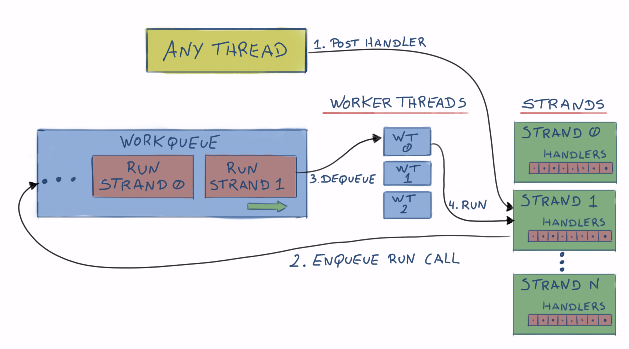 ANY THREAD
1. POST HANDLER
WORKER THREADS
STRANDS
WORKQUEUE
RUN
STRAND 0
RUN
STRAND 1
WT
0
WT
1
WT
2
3. DEQUEUE
4. RUN
STRAND 0
HANDLERS
STRAND 1
HANDLERS
STRAND N
HANDLERS
2. ENQUEUE RUN CALL